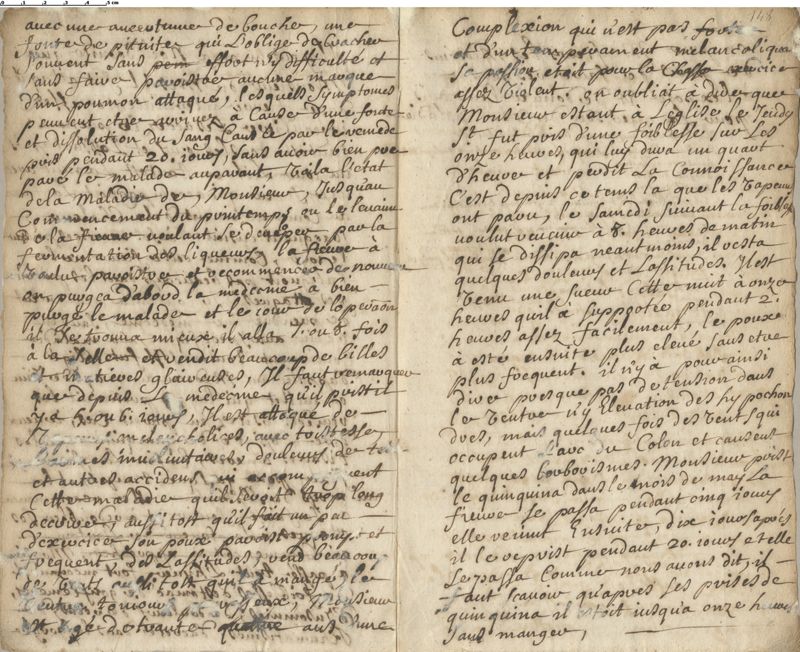 avec une amertume de bouche, une
fonte de pituite qui L'oblige de Cracher
souvent sans effort ny difficulté et
sans faire paroistre aucune marque
d'un poumon attaqué, lesquels symptomes
peuvent etre arrivez à Cause d'une fonte
et dissolution du sang Causée par le remede
pris pendant 20. jours, sans avoir bien pre
paré le malade auparavant, Voila l'etat
de la Maladie de, Monsieur, Jusqu'au
Commencement du printemps, ou le levain
de la fievre voulant se developer par la
fermentation des liqueurs, la fievre à
voulu paroistre et recommencer de nouveau
on purgea d'abord la medecine à bien
purgé le malade et le jour de l'operaõn
il se trouva mieux, il alla 7. ou 8. fois
à la selle et rendit beaucoup de billes
et matieres glaireuses, Il faut remarquer
que depuis la medecine qu'il prist il
y a 5. ou 6. jours, Il est attaque de
melancholices, avec tristesse,
inquietudes, douleurs de
et autres accidens,
Cette maladie qui seroit trop long
decrire, aussi tost qu'il fait un peu
d'exercice son poux paroist prompt et
frequent des Lassitudes, rend beaucoup
de vents aussi tost qu'il à mangé, le
ventre tousjours paresseux, Monsieur
est agé de trante quatre ans d'une
148
Complexion qui n'est pas forte
et d'un temperament melancolique
Sa passion etoit pour la Chasse exercice
assez violent. on oubliait à dire que
Monsieur estant à L'eglise le Jeudy
St. fut pris d'une foiblesse sur Les
onze heures, qui luy dura un quart
d'heure et perdit La Connoissance
C'est depuis ce tems la que les vapeurs
ont paru, le Samedi suivant la foiblesse
voulut revenir à 8. heures de matin
qui se dissipa neantmoins, il resta
quelques douleurs et Lassitudes. Il est
venu une sueur Cette nuit à onze
heures qu'il à supportée pendant 2.
heures assez facilement, le poux
à esté ensuite plus elevé sans etre
plus frequent. il n'y à pour ainsi
dire presque pas de tension dans
le ventre n'y Elevation des hypochon
dres, mais quelques fois des vents qui
occupent L'arc du Colon et causent
quelques borborismes. Monsieur prist
le quinquina dans le mois de mars La
fievre se passa pendant cinq jours
elle revint Ensuite, dix jours aprés
il le reprist pendant 20. jours et elle
se passa Comme nous avons dit, il
faut scavoir qu'apres les prises de
quinquina il estoit jusqu'a onze heures
sans manger,